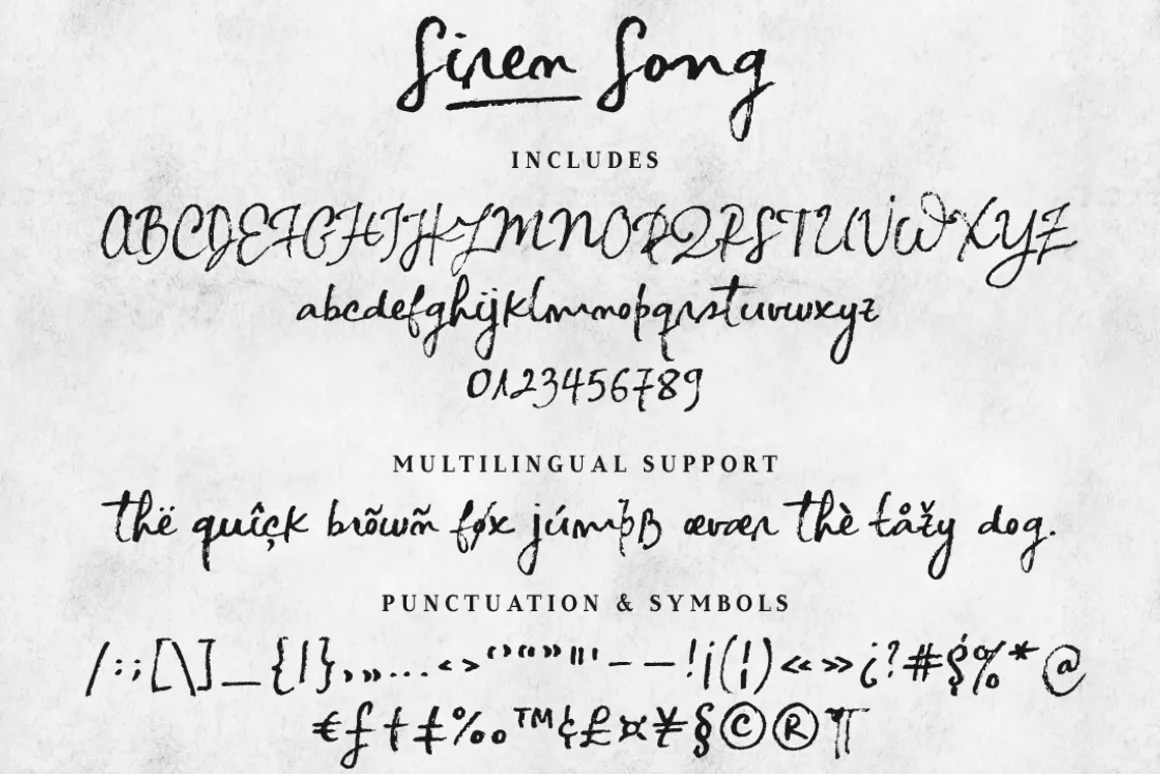 Siren Song
INCLUDES
ABCDEFGHIJKLMNOPQRSTUVWXYZ
abcdefghijklmnopqrstuvwxyz
0123456789
MULTILINGUAL SUPPORT
thë quîçk brõwñ føx júmþß œvær thè ťåžy dog.
PUNCTUATION & SYMBOLS
/:;[\]_{|}‚„…‹›‘’“”"'–—!¡(¦)«»¿?#$%*@
€ƒ†‡‰™¢£¤¥§©®¶